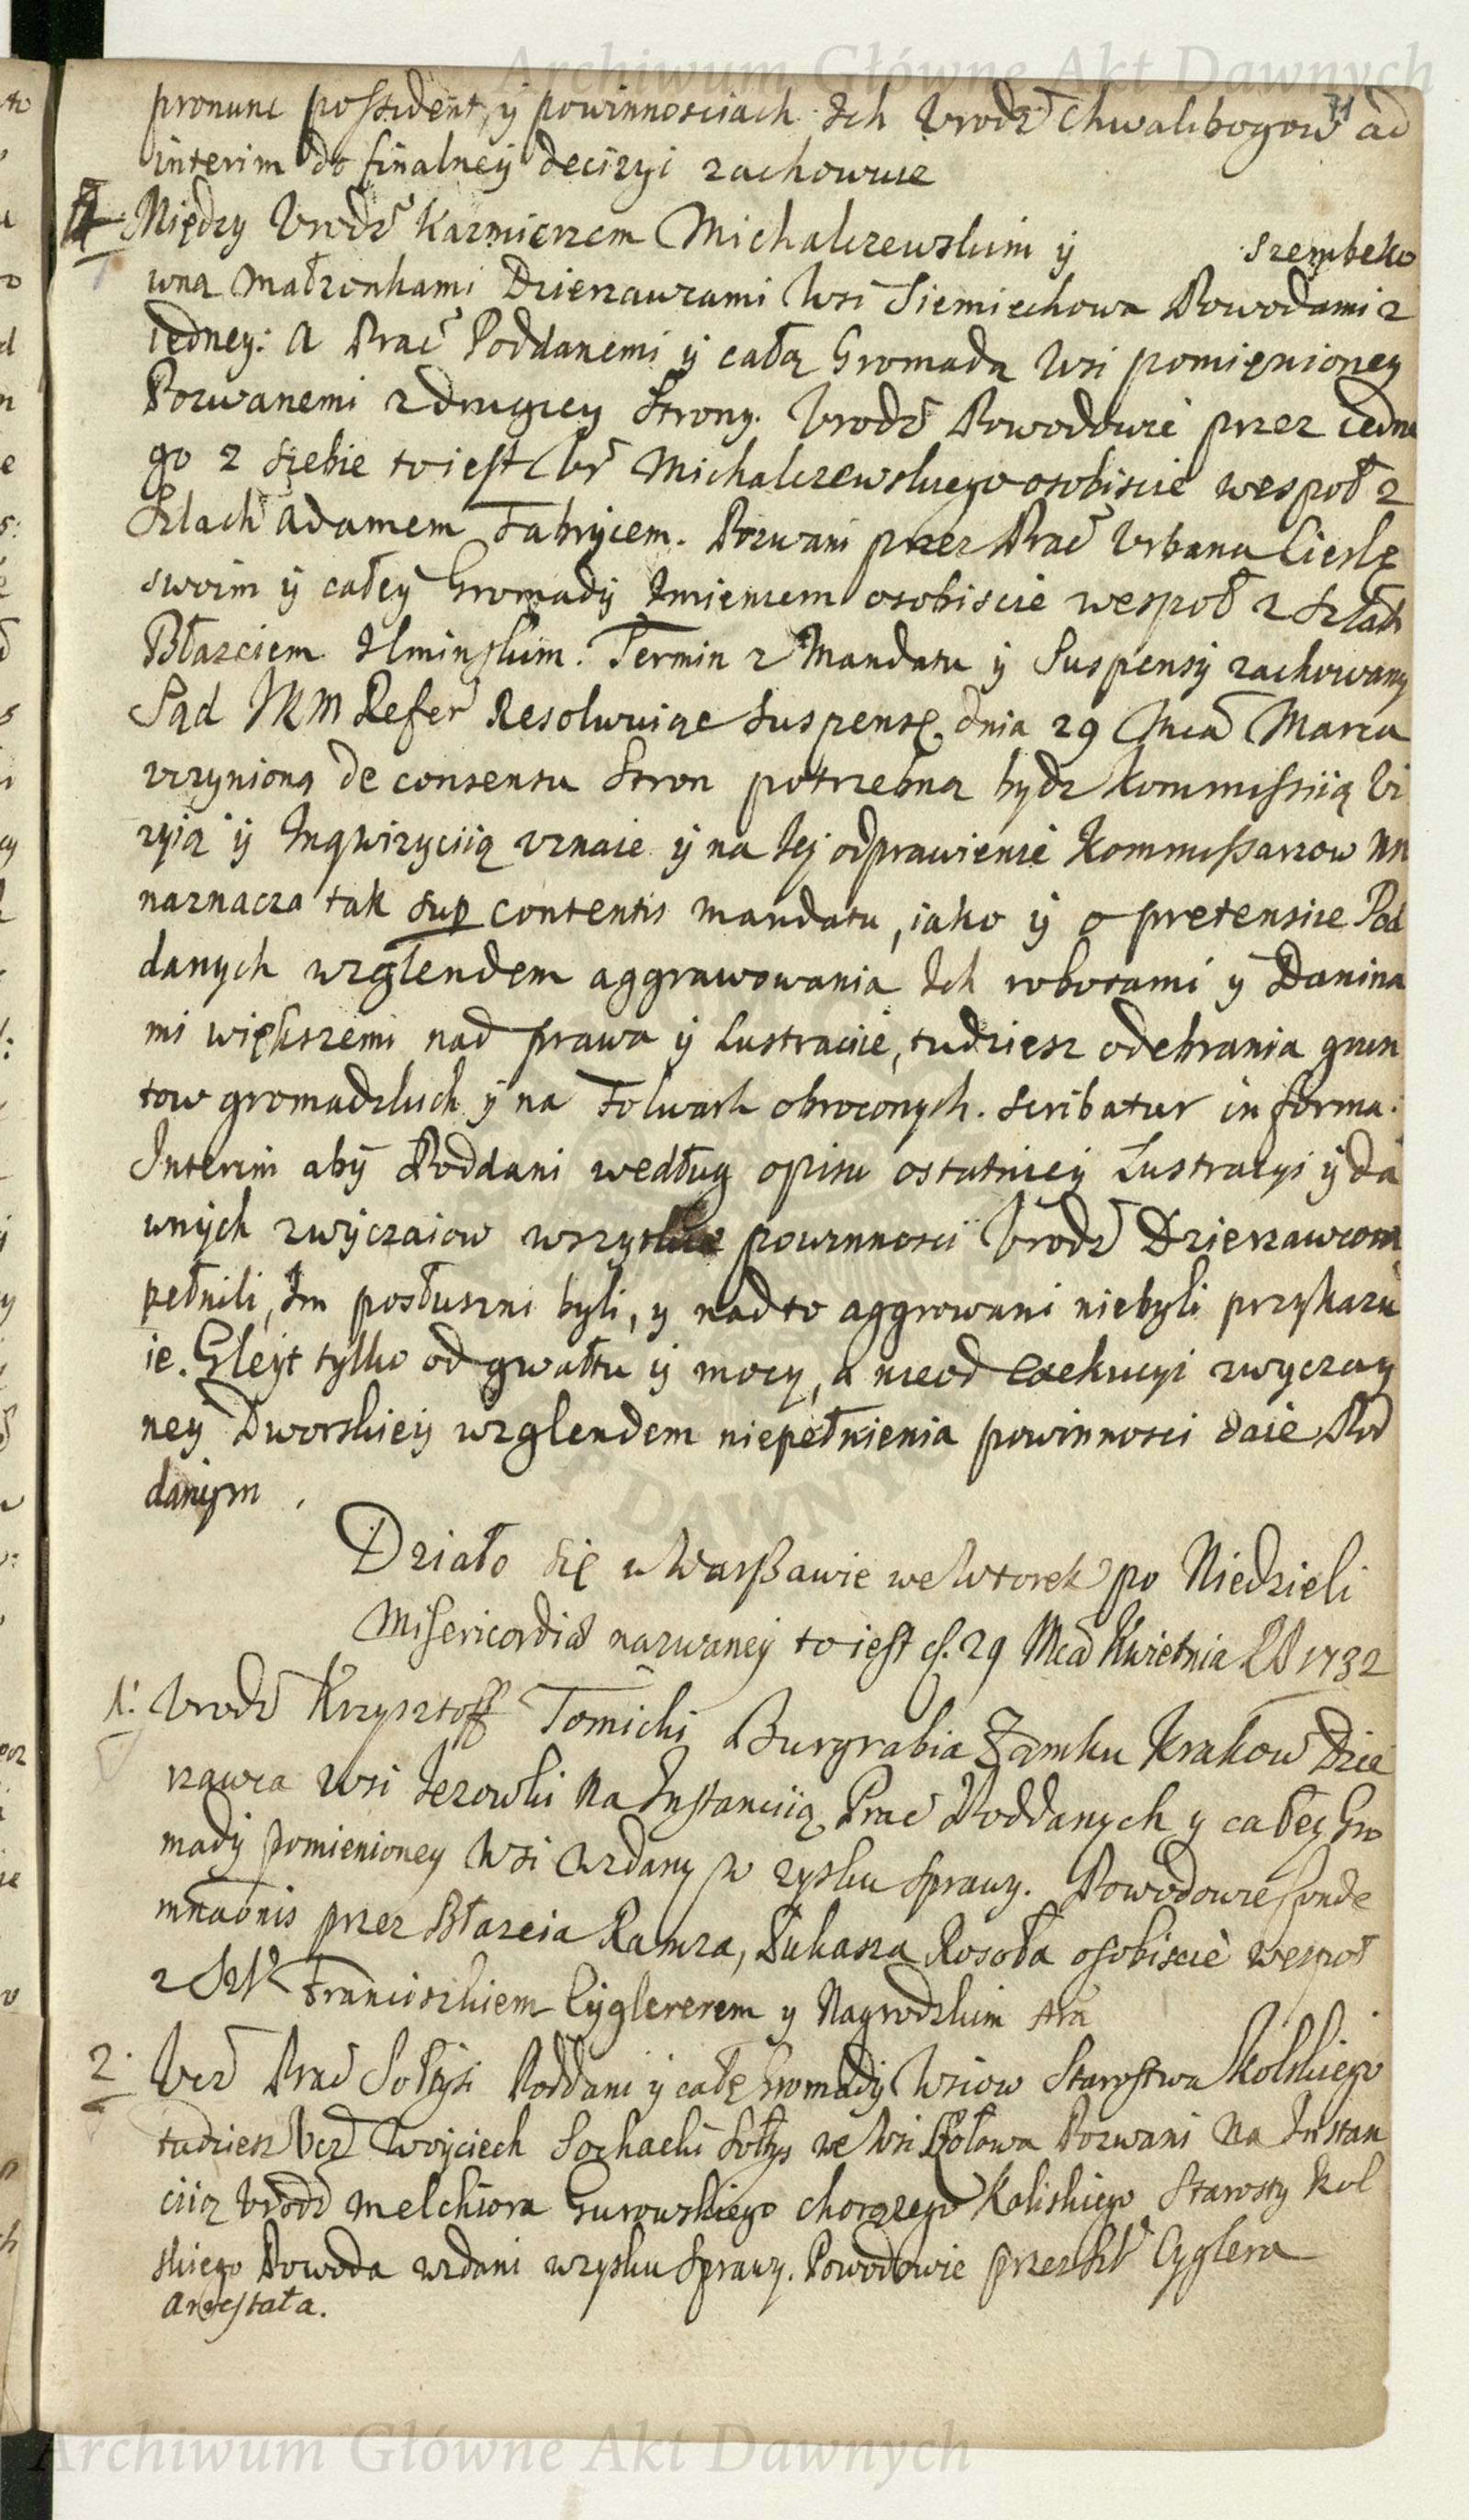 Archiwum Główne Akt Dawnych
71
pronunc possident, ÿ powinnosciach Ich Vrodz Chwalibogow ad
interim do finalneÿ decizyi zachowuie
4. Między Vrodz Kazmierzem Michalczewskim ÿ Szembeko
wną Małzonkami Dzierzawcami Wsi Siemiechowa Powodami z
iedney: A Prac Poddanemi ÿ całą Gromadą Wsi pomięnioney
Pozwanemi z drugiey Strony. Vrodz Powodowie przez iedne
go z siebie to iest Vr Michalczewskiego osobiscie wespoł z
Szlach Adamem Fabrycem. Pozwani przez Prac Vrbana Cieslę
swoim ÿ całeÿ Gromadÿ Imieniem osobiscie wespoł z Szlach
Błazeiem Ilminskim. Termin z Mandatu ÿ Suspensÿ zachowany
Sąd JKM Refer Resolwuiąc Suspensę dnia 29 Mca Marca
vczynioną de consensu Stron potrzebną bydz Kommissiią Vi
zyią ÿ Inqwizyciią vznaie ÿ na Iej odprawienie Kommissarzow NN
naznacza tak sup contentis mandatu, iako ÿ o pretensiie Pod
danych wzglendem aggrawowania Ich robotami ÿ Danina
mi większemi nad prawa ÿ Lustraciie, tudziesz odebrania grun
tow gromadzkich ÿ na Folwark obroconych. Scribatur in forma.
Interim abÿ Poddani według opisu ostatnieÿ Lustracyi ÿ da
wnÿch zwÿczaiow wszystkie powinnosci Vrodz Dzierzawcom
pełnili, Im posłuszni byli, y nadto aggrowani niebyli przykazu
ie. Gleyt tylko od gwałtu ÿ mocy, a nieod Exekucyi zwyczay
neÿ Dworskieÿ wzglendem niepełnienia powinnosci daie Pod
danÿm.
Działo się w Warszawie we Wtorek po Niedzieli
Misericordia nazwaneÿ to iest d. 29 Mca Kwietnia RP 1732
1. Vrodz Krzysztoff Tomicki Burgrabia Zamku Krakow Dzie
rzawca Wsi Jezowki Na Instanciią Prac Poddanych y całeÿ Gro
madÿ pomienioney Wsi wzdany w zysku sprawy. Powodowie
przez Błazeia Ramza, Łukasza Rosoła osobiscie wespoł
z Szl Franciszkiem Cÿglererem y Nagrodzkim
2. Vcz Prac Sołtysi Poddani ÿ całe Gromadÿ Wsiow Starostwa Kolskiego
tudziesz Vcz Woÿciech Sochacki Sołtys we Wsi Pozwani Na Instan
ciią Vrodz Melchiora Gurowskiego Chorązego Kaliskiego Starosty Kol
skiego Powoda wzdani w zysku Sprawy. Powodowie przez Szl Cyglera
Arrestata.
Archiwum Główne Akt Dawnych